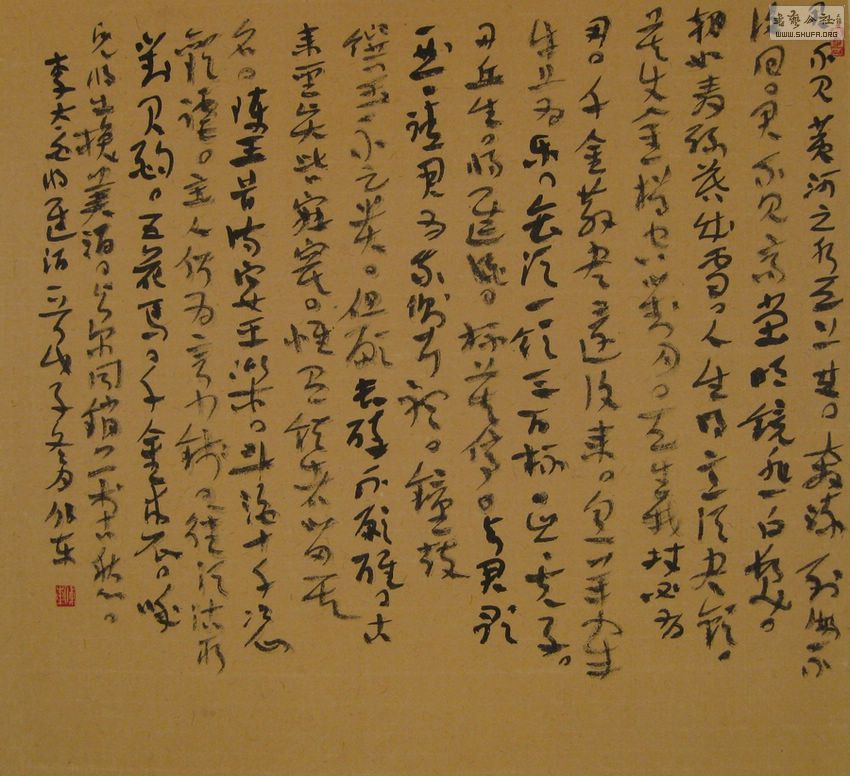 君不见黄河之水天上来。奔流到海不
復回。君不见高堂明鏡悲白髮。
朝如青絲暮成雪。人生得意須尽歡。
莫使金樽空對月。天生我材必有
用。千金散尽還復来。烹羊宰
牛且为乐。会須一飲三百杯。岑夫子。
丹丘生。将進酒。杯莫停。与君歌
一曲。請君为我倾耳聽。鐘鼓
饌玉不足贵。但願長醉不願醒。古
来聖賢皆寂寞。惟有飲者留其
名。陳王昔時宴平樂。斗酒十千恣
歡謔。主人何为言少錢。径須沽取
對君酌。五花馬。千金裘。呼
兒将出换美酒。与尔同銷万古愁。
李太白将進酒
WWW.SHUFA.ORG